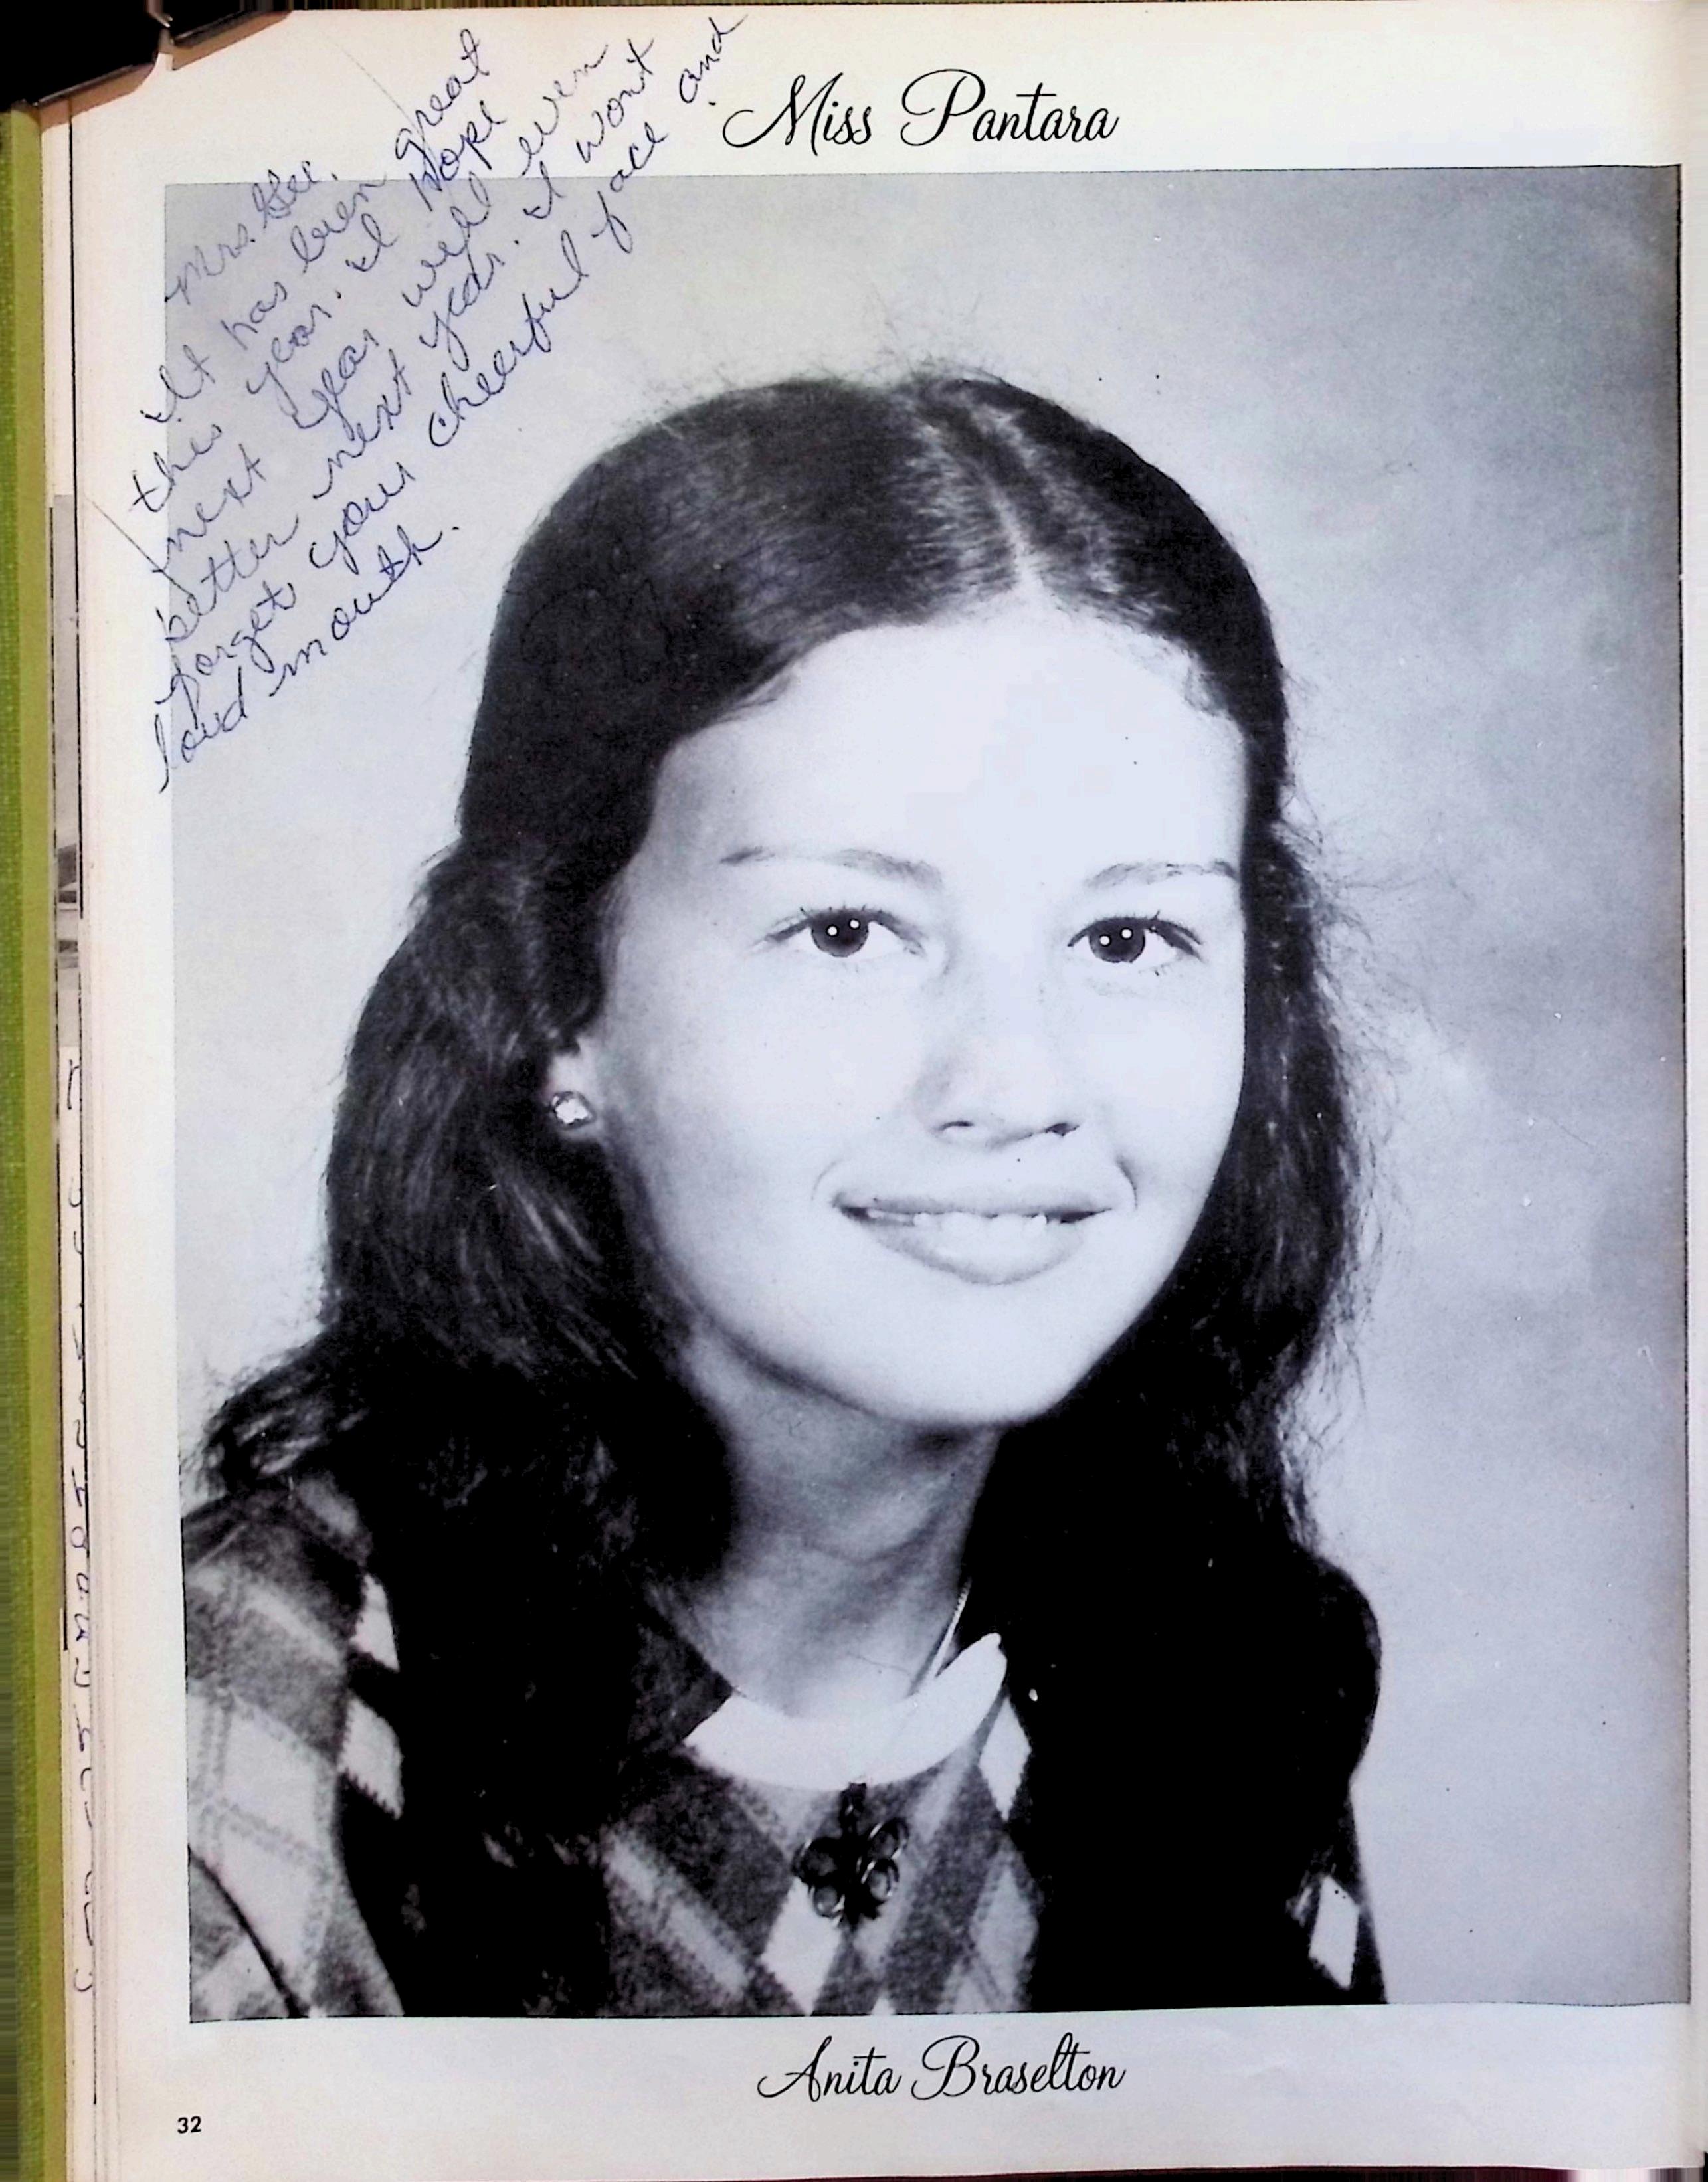 Miss Pantara
Mrs. Gee,
It has been great
this year. I hope
next year will even
better next year. I wont
forget your cheerful face and
loud mouth.
Anita Braselton
32